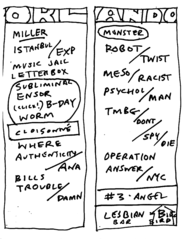 ORL
MILLER
ISTANBUL/EXP
MUSIC JAIL
LETTERBOX
SUBLIMINAL
ENSOR
(CLICK!) B-DAY
WORM
CLOISONNE
WHERE
AUTHENTICITY/ANA
BILLS
TROUBLE/DAMN
ANDO
MONSTER
ROBOT/TWIST
MESO/RACIST
PSYCHOL/MAN
TMBG/DONT
SPY/DIE
OPERATION
ANSWER/NYC
#3·ANGEL
LESBIAN BAR/BIG BIRD